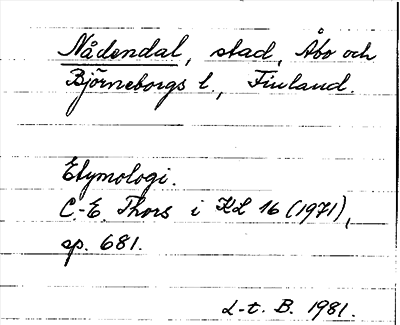 Nådendal, stad, Åbo och
Björneborgs l., Finland.
Etymologi.
C.-E. Thors i KL 16 (1971),
sp. 681.
L-t. B. 1981.